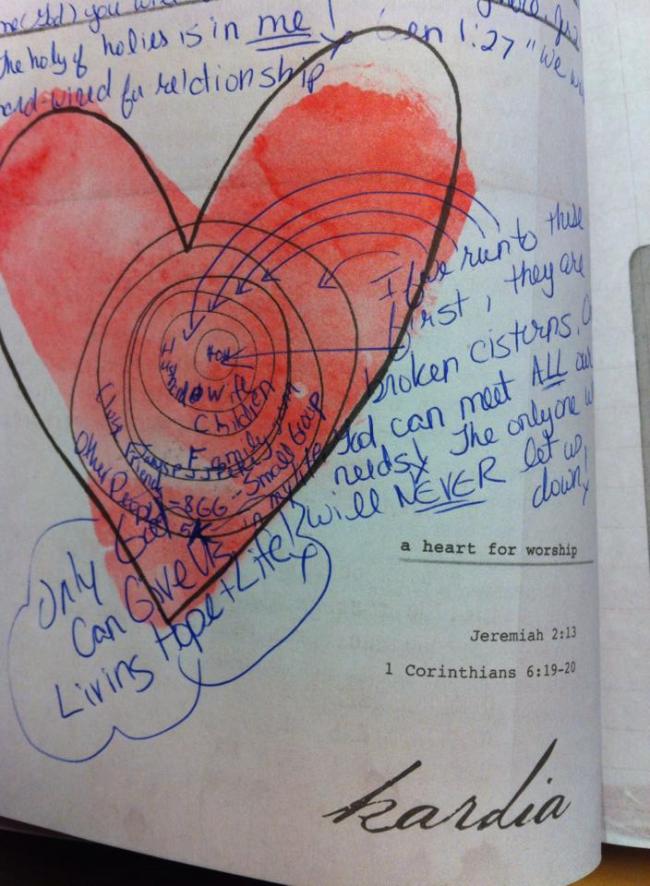 you
The holy of holies is in me!
Gen 1:27 "We
hard-wired for relctionship
I've run to these
first, they are
broken cisterns.
God can meet ALL our
needs! The only one
will NEVER let us
down!
Husband wife
Children
Family
Friends
Small Group
Other People in my life
Only God
Can Give Us
Living Hope + Life!
a heart for worship
Jeremiah 2:13
1 Corinthians 6:19-20
kardia